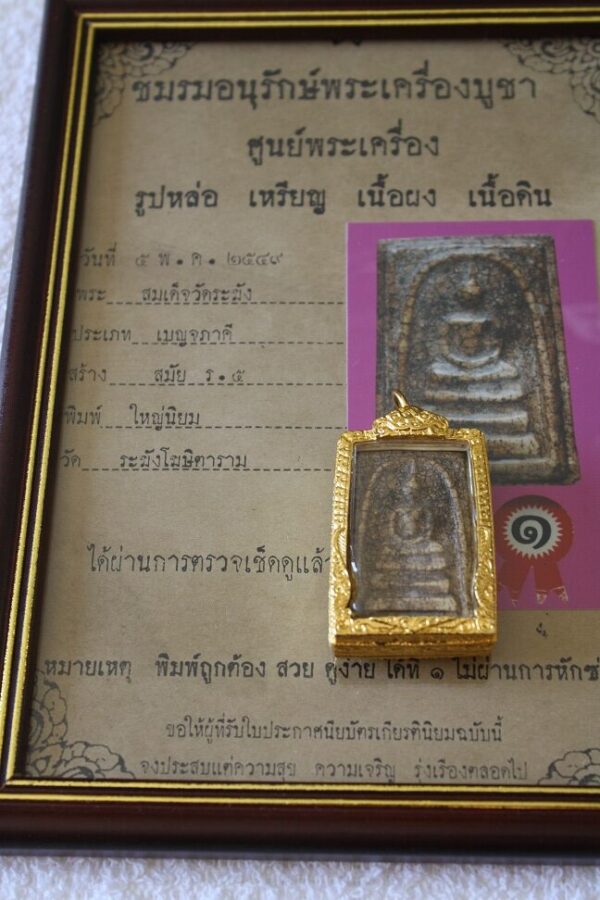 ชมรมอนุรักษ์พระเครื่องบูชา
ศูนย์พระเครื่อง
รูปหล่อ เหรียญ เนื้อผง เนื้อดิน
วันที่ ๕ พ.ค. ๒๕๔๙
พระ สมเด็จวัดระฆัง
ประเภท เบญจภาคี
สร้าง สมัย ร.๕
พิมพ์ ใหญ่นิยม
วัด ระฆังโฆษิตาราม
๑
ได้ผ่านการตรวจเช็คดูแล้ว
หมายเหตุ พิมพ์ถูกต้อง สวย ดูง่าย ได้ที่ ๑ ไม่ผ่านการหัก
ขอให้ผู้ที่รับใบประกาศนียบัตรเกียรตินิยมฉบับนี้
จงประสบแต่ความสุข ความเจริญ รุ่งเรืองตลอดไป